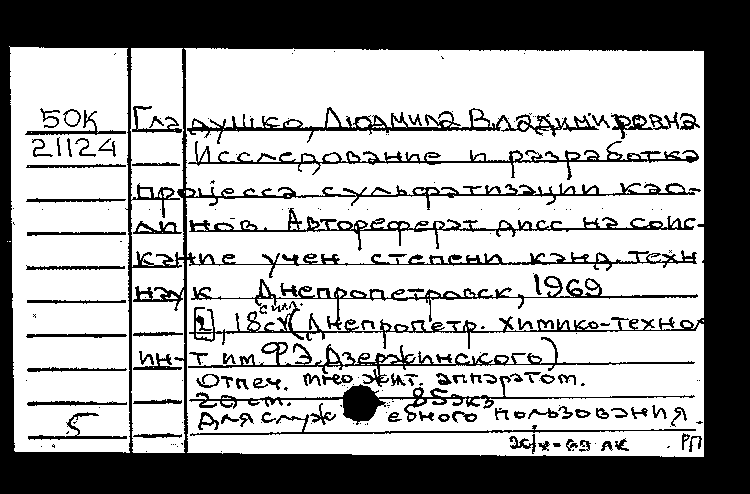 50К Гладушко, Людмила Владимировна
21124 Исследование и разработка
процесса сульфатизации као-
линов. Автореферат дисс. на соис-
кание учен. степени канд. техн.
наук. Днепропетровск, 1969
с илл.
[2], 18с (Днепропетр. химико-технол
ин-т им. Ф.Э.Дзержинского)
Отпеч. множит. аппаратом.
20 ст. 85экз
5 Для служебного пользования
РП